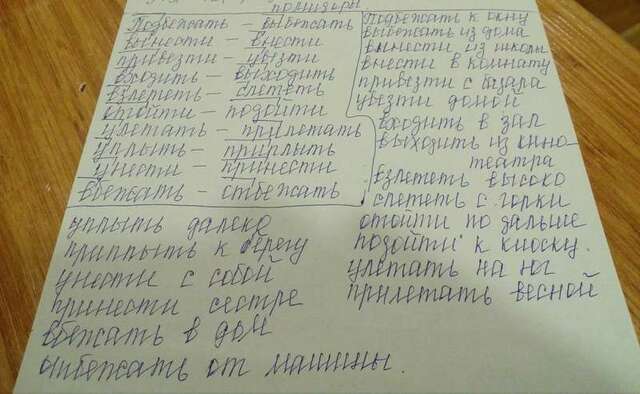 Подбежать – выбежать
вынести – внести
привезти – увезти
входить – выходить
взлететь – слететь
отойти – подойти
улетать – прилетать
уплыть – приплыть
унести – принести
вбежать – отбежать
Подбежать к окну
выбежать из дома
вынести из школы
внести в комнату
привезти с базара
увезти домой
входить в зал
выходить из кино-
театра
взлететь высоко
слететь с горки
отойти по дальше
подойти к киоску.
улетать на юг
прилетать весной
уплыть далеко
приплыть к берегу
унести с собой
принести сестре
вбежать в дом
отбежать от машины.